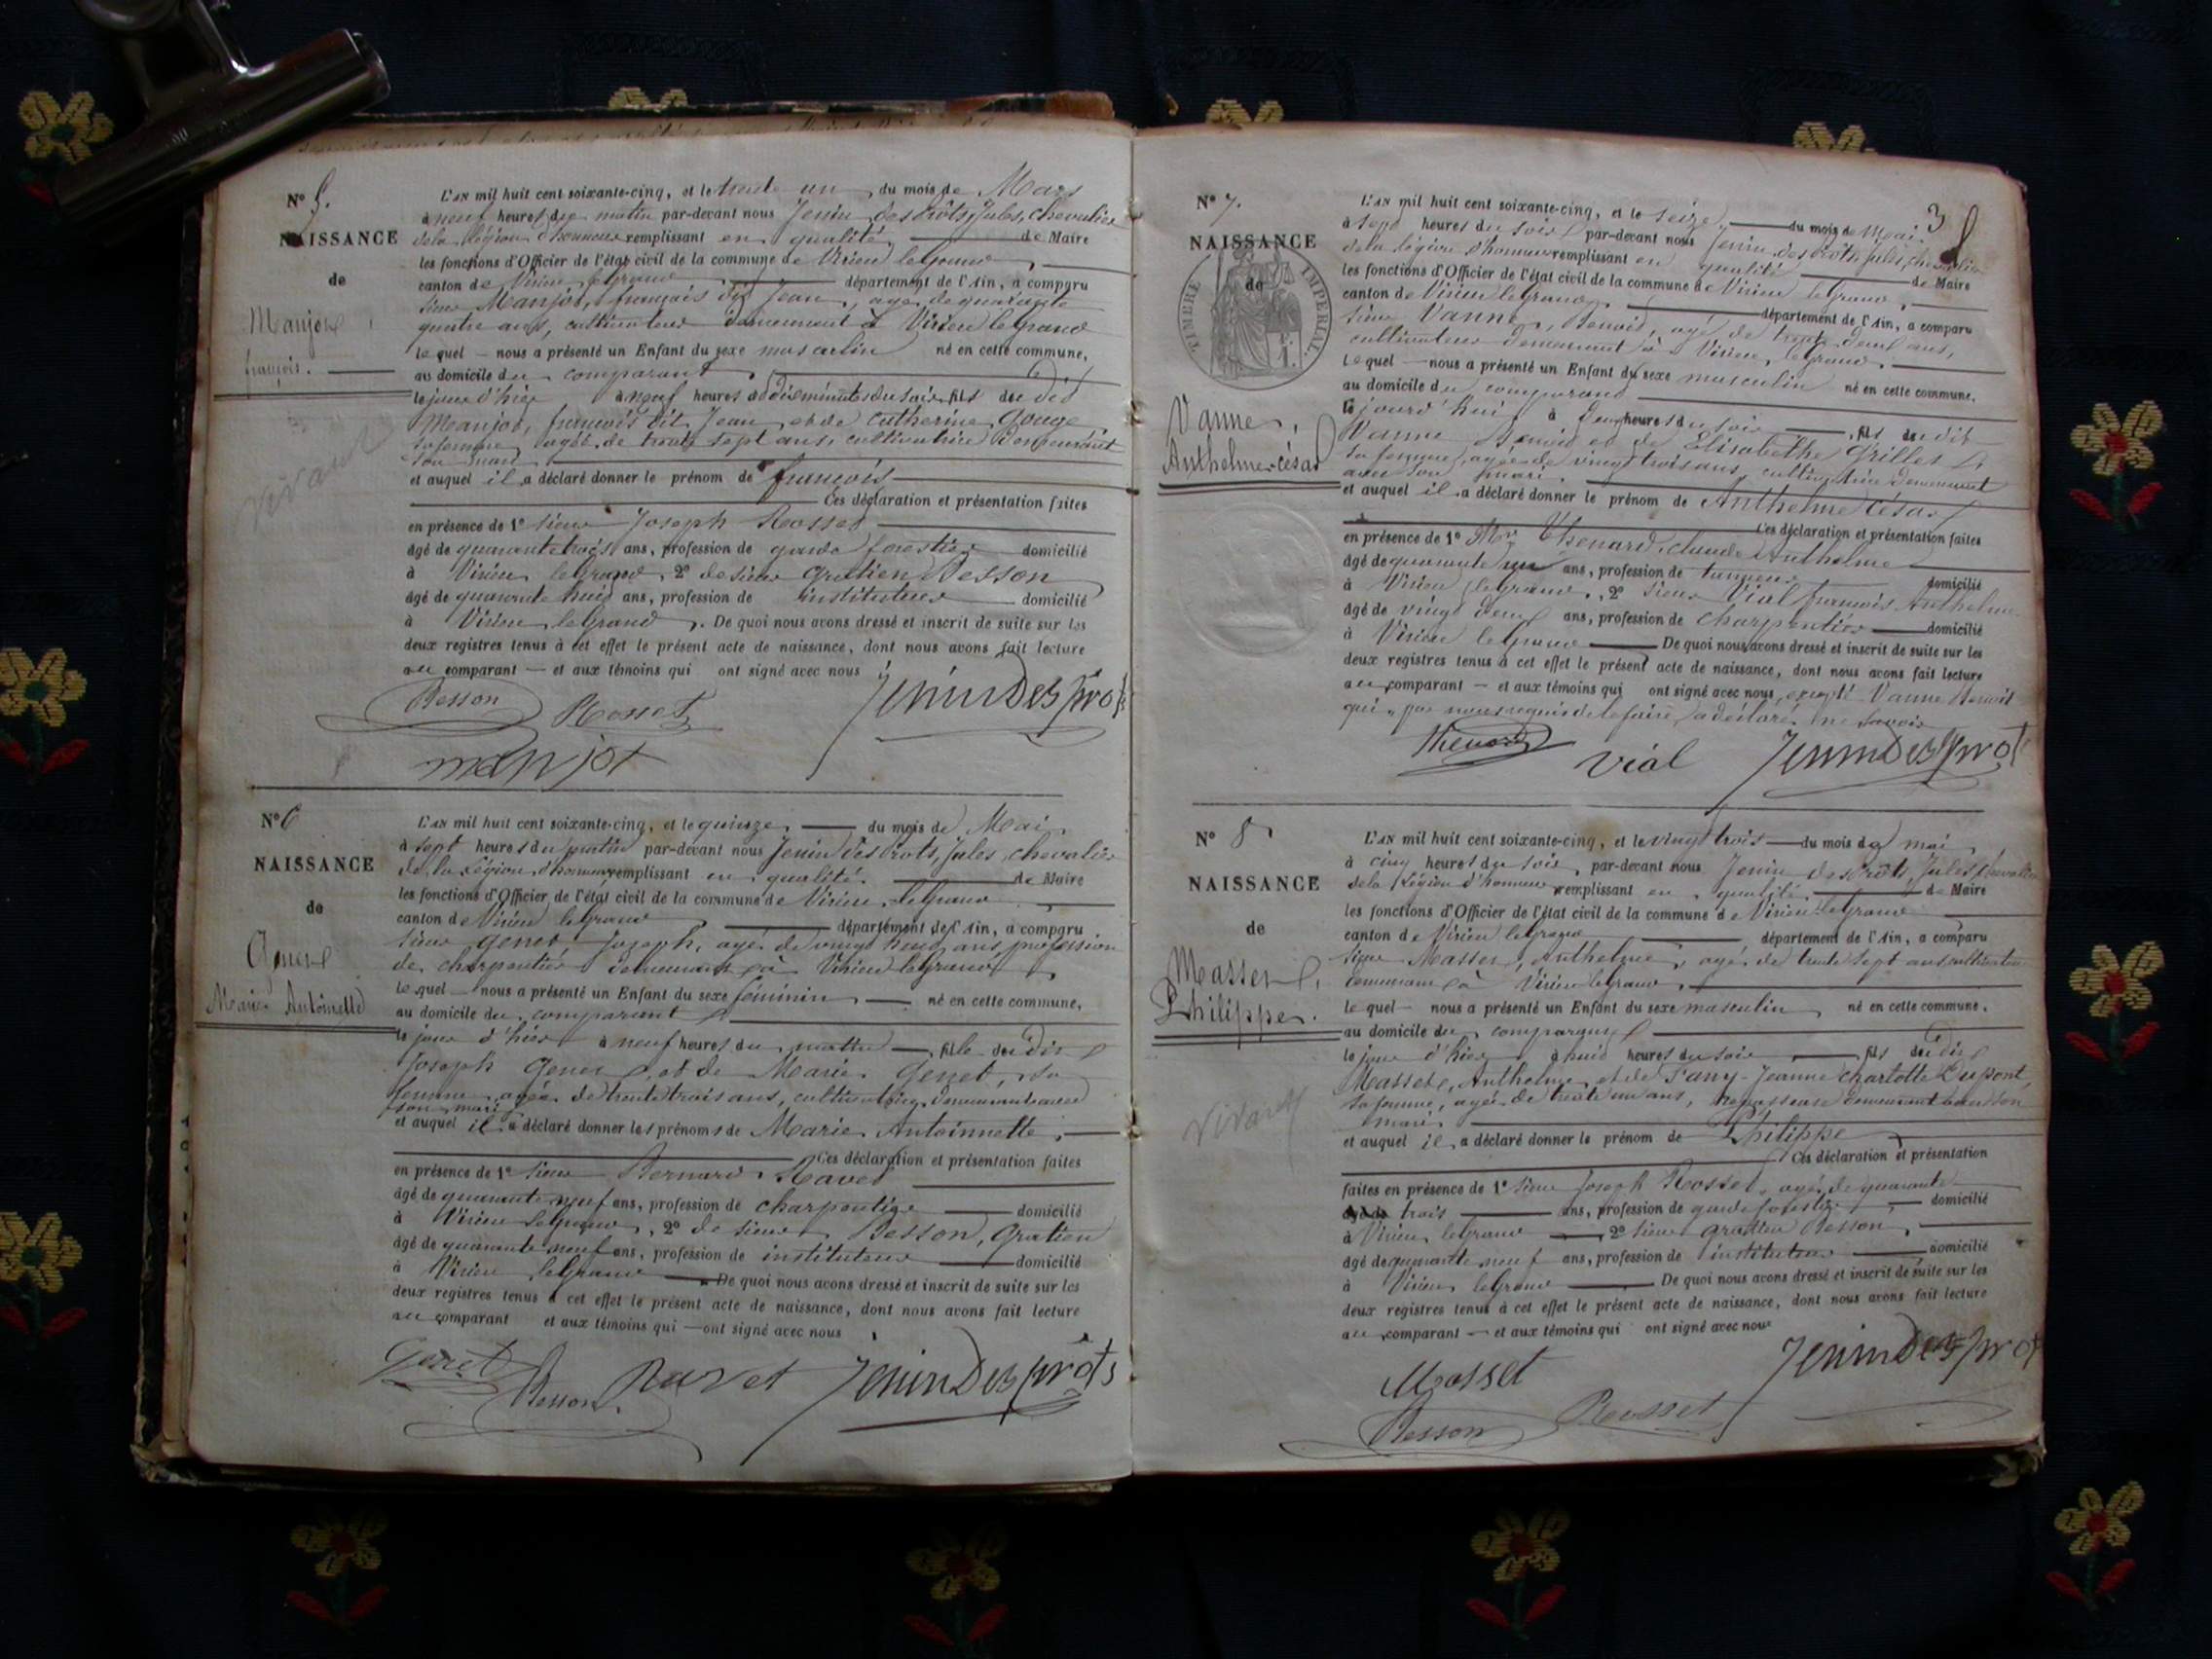 N° 5.
NAISSANCE
de
Manjot
françois.
vivant
L'AN mil huit cent soixante-cinq, et le trente un du mois de Mars
à neuf heures du matin par-devant nous Jenin des prôts, Jules, chevalier
de la Légion d'honneur remplissant en qualité de Maire
les fonctions d'Officier de l'état civil de la commune de Virieu le Grand
canton de Virieu le Grand département de l'Ain, a comparu
sieur Manjot, françois dit Jean, agé de quarante
quatre ans, cultivateur demeurant à Virieu le Grand
lequel nous a présenté un Enfant du sexe masculin né en cette commune,
au domicile du comparant
le jour d'hier à neuf heures du soir fils du dit
Manjot, françois dit Jean et de Catherine Gouge
sa femme agée de trente sept ans, cultivatrice demeurant
son mari
et auquel il a déclaré donner le prénom de françois
Ces déclaration et présentation faites
en présence de 1° sieur Joseph Rosset
âgé de quarante trois ans, profession de garde forestier domicilié
à Virieu le Grand, 2° de sieur Gratien Besson
âgé de quarante huit ans, profession de instituteur domicilié
à Virieu le Grand. De quoi nous avons dressé et inscrit de suite sur les
deux registres tenus à cet effet le présent acte de naissance, dont nous avons fait lecture
au comparant et aux témoins qui ont signé avec nous
Besson Rosset Jenin Des prôts
manjot
N° 6
NAISSANCE
de
Genet
Marie Antoinette
L'AN mil huit cent soixante-cinq, et le quinze du mois de Mai
à sept heures du matin par-devant nous Jenin des prôts, Jules, chevalier
de la Légion d'honneur remplissant en qualité de Maire
les fonctions d'Officier de l'état civil de la commune de Virieu le Grand
canton de Virieu le Grand département de l'Ain, a comparu
sieur Genet Joseph, agé de vingt huit ans profession
de charpentier demeurant à Virieu le Grand
lequel nous a présenté un Enfant du sexe féminin né en cette commune,
au domicile du comparant
le jour d'hier à neuf heures du matin fille du dit
Joseph Genet et de Marie Genet, sa
femme agée de trente trois ans, cultivatrice demeurant avec
son mari
et auquel il a déclaré donner les prénoms de Marie Antoinnette
Ces déclaration et présentation faites
en présence de 1° sieur Bernard Ravet
âgé de quarante neuf ans, profession de charpentier domicilié
à Virieu le Grand, 2° de sieur Besson, Gratien
âgé de quarante neuf ans, profession de instituteur domicilié
à Virieu le Grand De quoi nous avons dressé et inscrit de suite sur les
deux registres tenus à cet effet le présent acte de naissance, dont nous avons fait lecture
au comparant et aux témoins qui ont signé avec nous
Genet Besson Ravet Jenin Des prôts
3
N° 7.
NAISSANCE
de
TIMBRE IMPERIAL
Vanne,
Anthelme césar
L'AN mil huit cent soixante-cinq, et le seize du mois de Mai
à sept heures du soir par-devant nous Jenin des prôts jules, chevalier
de la légion d'honneur remplissant en qualité de Maire
les fonctions d'Officier de l'état civil de la commune de Virieu le Grand,
canton de Virieu le Grand, département de l'Ain, a comparu
sieur Vanne, Benoit, agé de trente deux ans,
cultivateur demeurant à Virieu le Grand
lequel nous a présenté un Enfant du sexe masculin né en cette commune,
au domicile du comparant
le jourd'hui à deux heures du soir fils du dit
Vanne Benoit et de Elisabethe Grillet
sa femme, agée de vingt trois ans, cultivatrice demeurant
avec son mari.
et auquel il a déclaré donner le prénom de Anthelme César
Ces déclaration et présentation faites
en présence de 1° Mr Thenard, claude Anthelme
âgé de quarante un ans, profession de tanneur domicilié
à Virieu le Grand, 2° sieur Vial françois Anthelme
âgé de vingt deux ans, profession de charpentier domicilié
à Virieu le Grand De quoi nous avons dressé et inscrit de suite sur les
deux registres tenus à cet effet le présent acte de naissance, dont nous avons fait lecture
au comparant et aux témoins qui ont signé avec nous, excepté Vanne Benoit
qui, par nous requis de le faire, a déclaré ne savoir
Thenard Vial Jenin Des prôt
N° 8
NAISSANCE
de
Masset,
Philippe.
vivant
L'AN mil huit cent soixante-cinq, et le vingt trois du mois de mai
à cinq heures du soir, par-devant nous Jenin des prôts, Jules chevalier
de la Légion d'honneur remplissant en qualité de Maire
les fonctions d'Officier de l'état civil de la commune de Virieu le Grand
canton de Virieu le grand département de l'Ain, a comparu
sieur Masset, Anthelme, agé de trente sept ans cultivateur
demeurant à Virieu le Grand,
lequel nous a présenté un Enfant du sexe masculin né en cette commune,
au domicile du comparant
le jour d'hier à huit heures du soir fils du dit
Masset, Anthelme et de Fany-Jeanne Charlotte Dupont,
sa femme, agée de trente un ans, repasseuse demeurant avec son
mari
et auquel il a déclaré donner le prénom de Philippe
Ces déclaration et présentation
faites en présence de 1° sieur Joseph Rosset, agé de quarante
trois ans, profession de garde forestier, domicilié
à Virieu le Grand 2° sieur Gratien Besson
âgé de quarante neuf ans, profession de instituteur domicilié
à Virieu le Grand De quoi nous avons dressé et inscrit de suite sur les
deux registres tenus à cet effet le présent acte de naissance, dont nous avons fait lecture
au comparant et aux témoins qui ont signé avec nous
Masset Jenin Des prôt
Besson Rosset